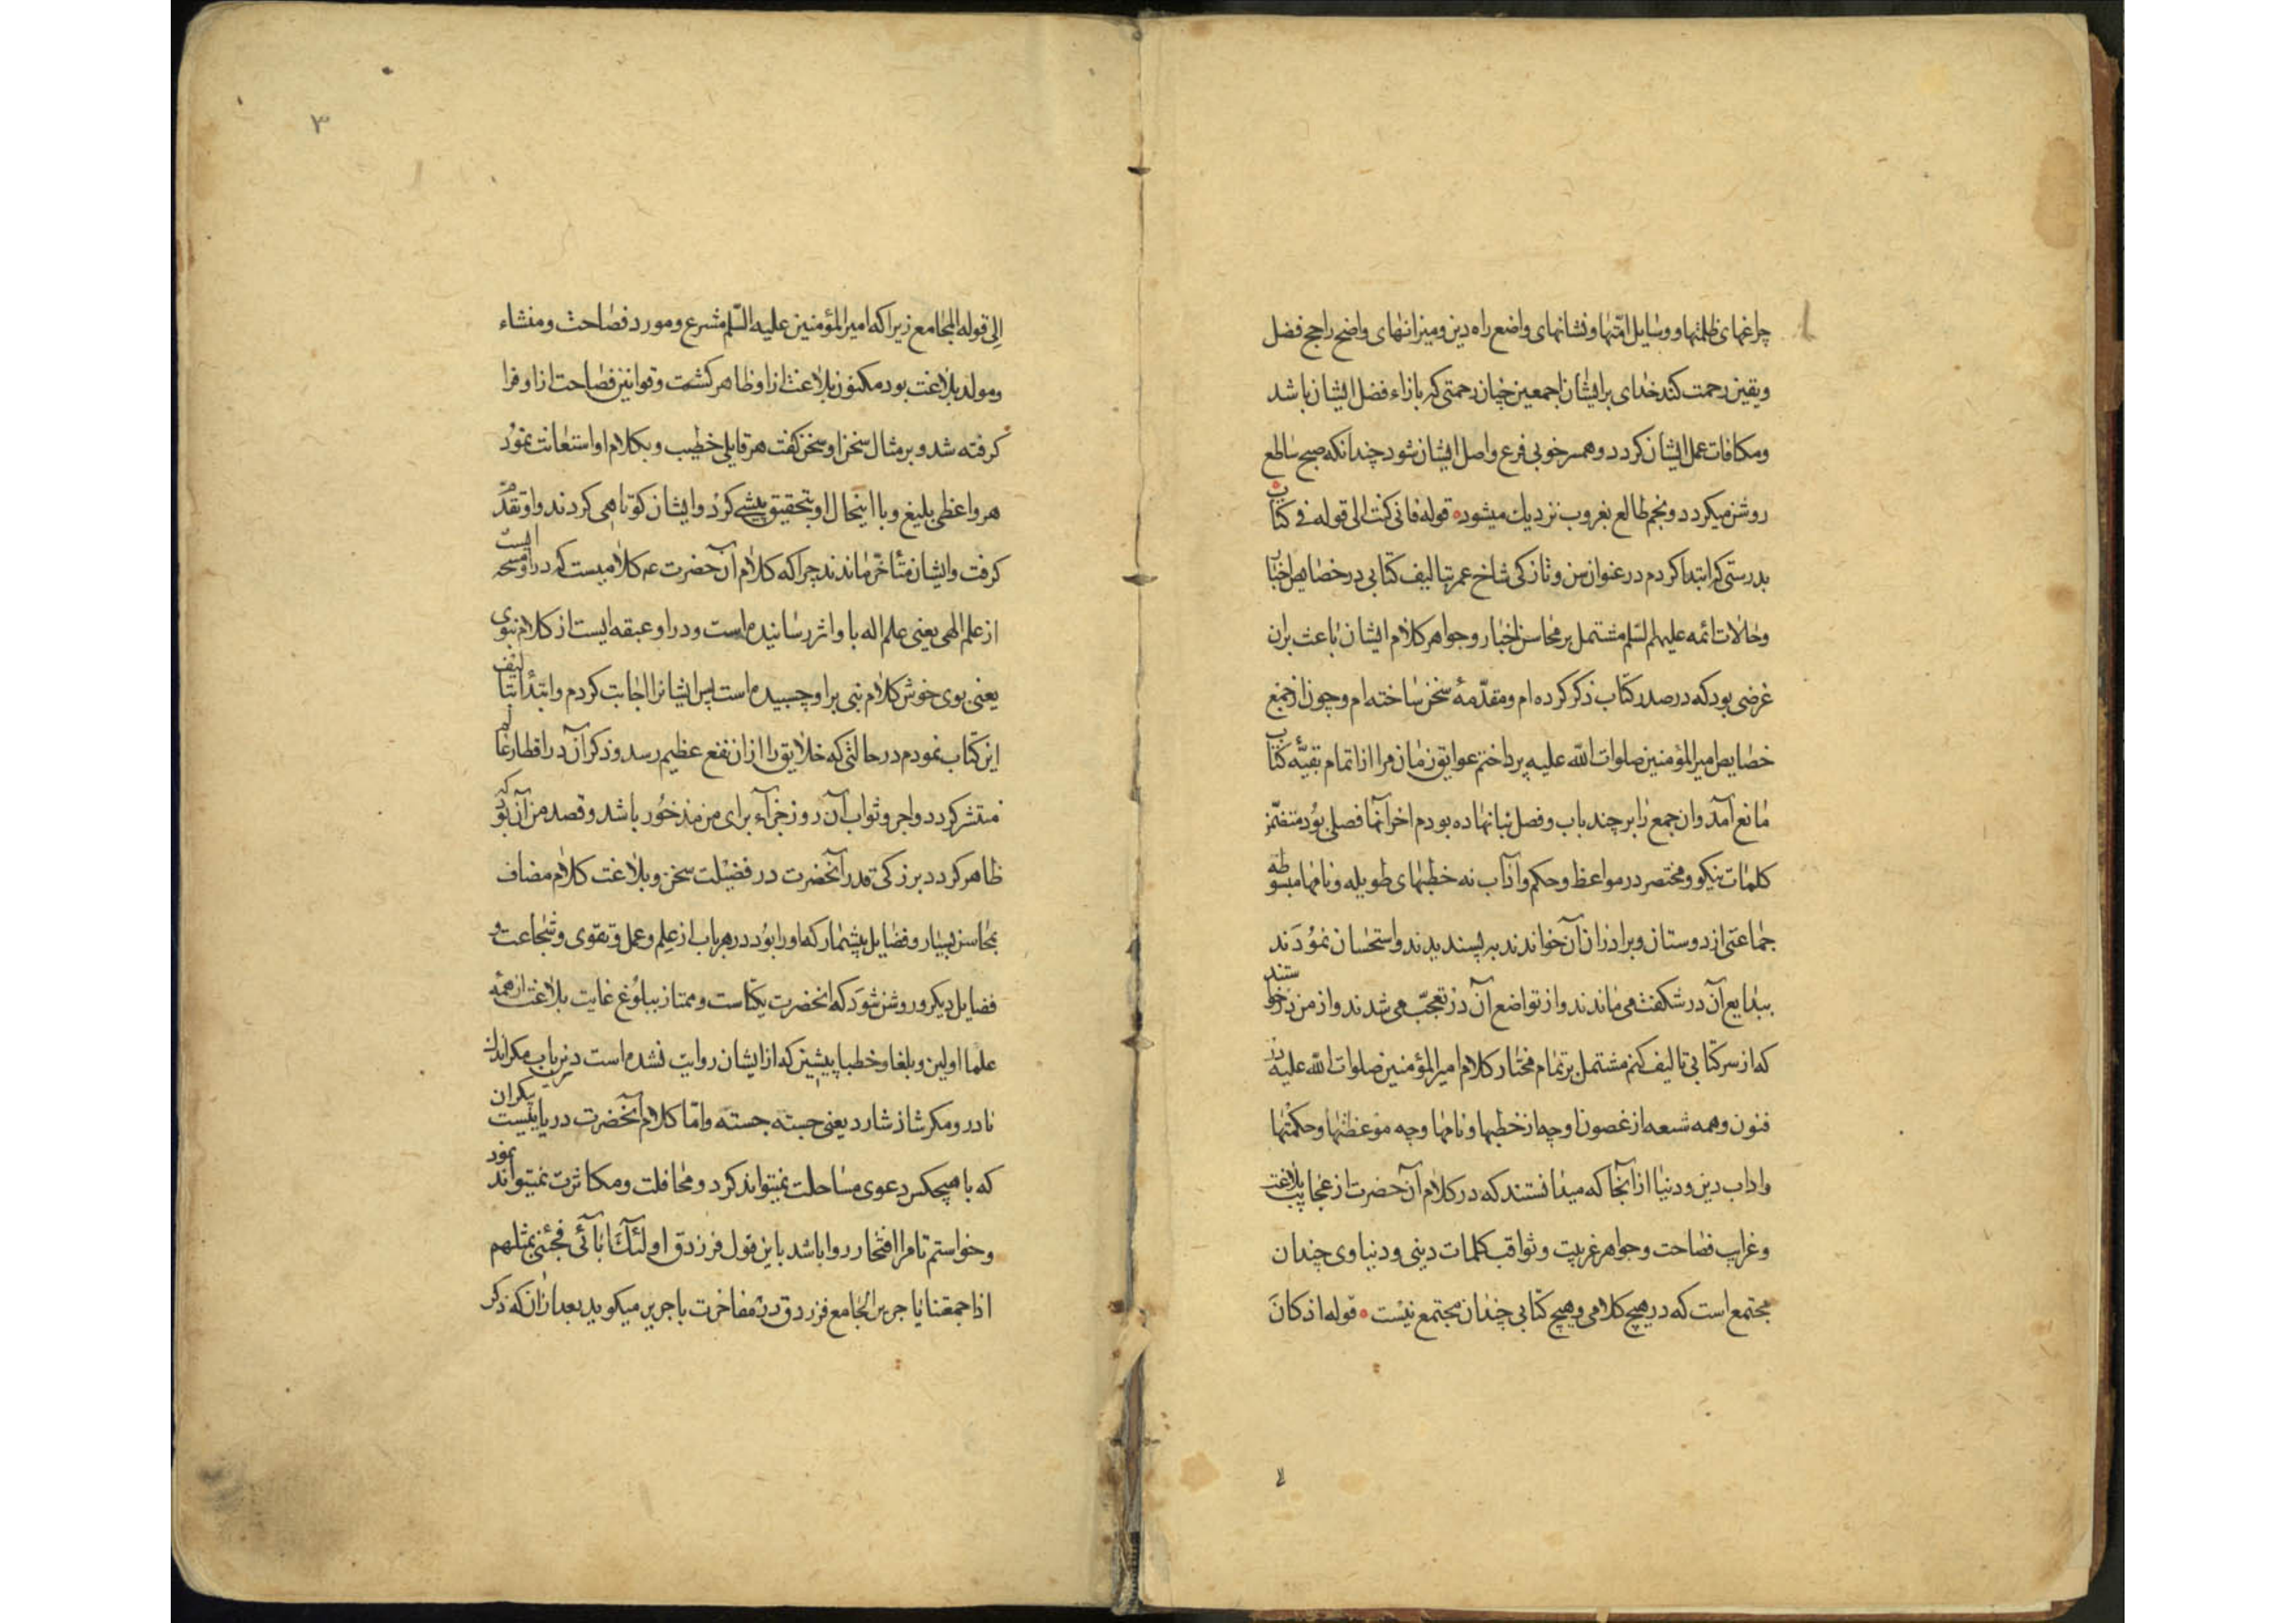 چراغهای ظلمتها و وسایل امّتها و نشانهای واضع راه دین و میزانهای واضح راجح فضل
و یقین رحمت کند خدای بر ایشان اجمعین چنان رحمتی که بازاء فضل ایشان باشد
و مکافات عمل ایشان کردد و همسر خوبی فرع و اصل ایشان شود چندانکه صبح ساطع
روشن میکردد و نجم طالع بغروب نزدیك میشود قوله فانی کنت الی قوله فی کتاب
بدرستی که ابتدا کردم در عنوان سن و تازکی شاخ عمر بتالیف کتابی در خصایص اخبار
و حالات ائمه علیهم السّلم مشتمل بر محاسن اخبار و جواهر کلام ایشان باعث بران
غرضی بود که در صدر کتاب ذکر کرده ام و مقدّمهٔ سخن ساخته ام و چون از جمع
خصایص امیر المؤمنین صلوات اللّه علیه پرداختم عوایق زمان مرا از اتمام بقیّهٔ کتاب
مانع آمد و ان جمع را بر چند باب و فصل بنا نهاده بودم اخر آنها فصلی بود متضمّن
کلمات نیکو و مختصر در مواعظ و حکم و آداب نه خطبهای طویله و نامها مبسوطه
جماعتی از دوستان و برادران آن خواندند به پسندیدند و استحسان نمودند
ببدایع آن در شکفت می ماندند و از تواضع آن در تعجّب می شدند و از من درخواستند
که از سر کتابی تالیف کنم مشتمل بر تمام مختار کلام امیر المؤمنین صلوات اللّه علیه در
فنون و همه شعبه از غصون او چه از خطبها و نامها و چه موعظتها و حکمتها
و اداب دین و دنیا از آنجا که میدانستند که در کلام آن حضرت از عجایب بلاغت
و غرایب فصاحت و جواهر عربیت و ثواقب کلمات دینی و دنیاوی چندان
مجتمع است که در هیچ کلامی و هیچ کتابی چندان مجتمع نیست قوله اذ کان
۳
الی قوله المجامع زیرا که امیر المؤمنین علیه السّلم مشرع و مورد فصاحت و منشاء
و مولد بلاغت بود مکنون بلاغت ازاو ظاهر کشت و قوانین فصاحت ازاو فرا
کرفته شد و بر مثال سخن او سخن کفت هر قایلی خطیب و بکلام او استعانت نمود
هر واعظی بلیغ و با اینحال او بتحقیق پیشی کرد و ایشان کوتاهی کردند و او تقدّم
کرفت و ایشان متأخّر ماندند چرا که کلام آن حضرت عم کلامیست که دراو مسحه ایست
از علم الهی یعنی علم اله با و اثر رسانیده است و دراو عبقه ایست از کلام نبوی
یعنی بوی خوش کلام نبی براو چسبیده است پس ایشانرا اجابت کردم و ابتدا بتالیف
این کتاب نمودم در حالتی که خلایق را ازان نفع عظیم رسد و ذکر آن در اقطار عالم
منتشر کردد و اجر و ثواب آن روز جزآء برای من مذخور باشد و قصد من آن بود که
ظاهر کردد بزرکی قدر آنحضرت در فضیلت سخن و بلاغت کلام مضاف
بمحاسن بسیار و فضایل بیشمار که او را بود در هر باب از علم و عمل و تقوی و شجاعت و
فضایل دیکر و روشن شود که انحضرت یکتاست و ممتاز ببلوغ غایت بلاغت از همه
علما اولین و بلغا و خطبا پیشین که از ایشان روایت نشده است درین باب مکر اندك
نادر و مکر شاذ شارد یعنی جسته جسته و امّا کلام آنحضرت دریاییست بیکران
که با هیچکس دعوی مساحلت نمیتواند کرد و محافلت و مکاثرت نمیتواند نمود
و خواستم تا مرا افتخار روا باشد باین قول فرزدق اولئك آبائی فجئنی بمثلهم
اذا جمعتنا یا جریر المجامع فرزدق در مفاخرت با جریر میکوید بعد ازان که ذکر